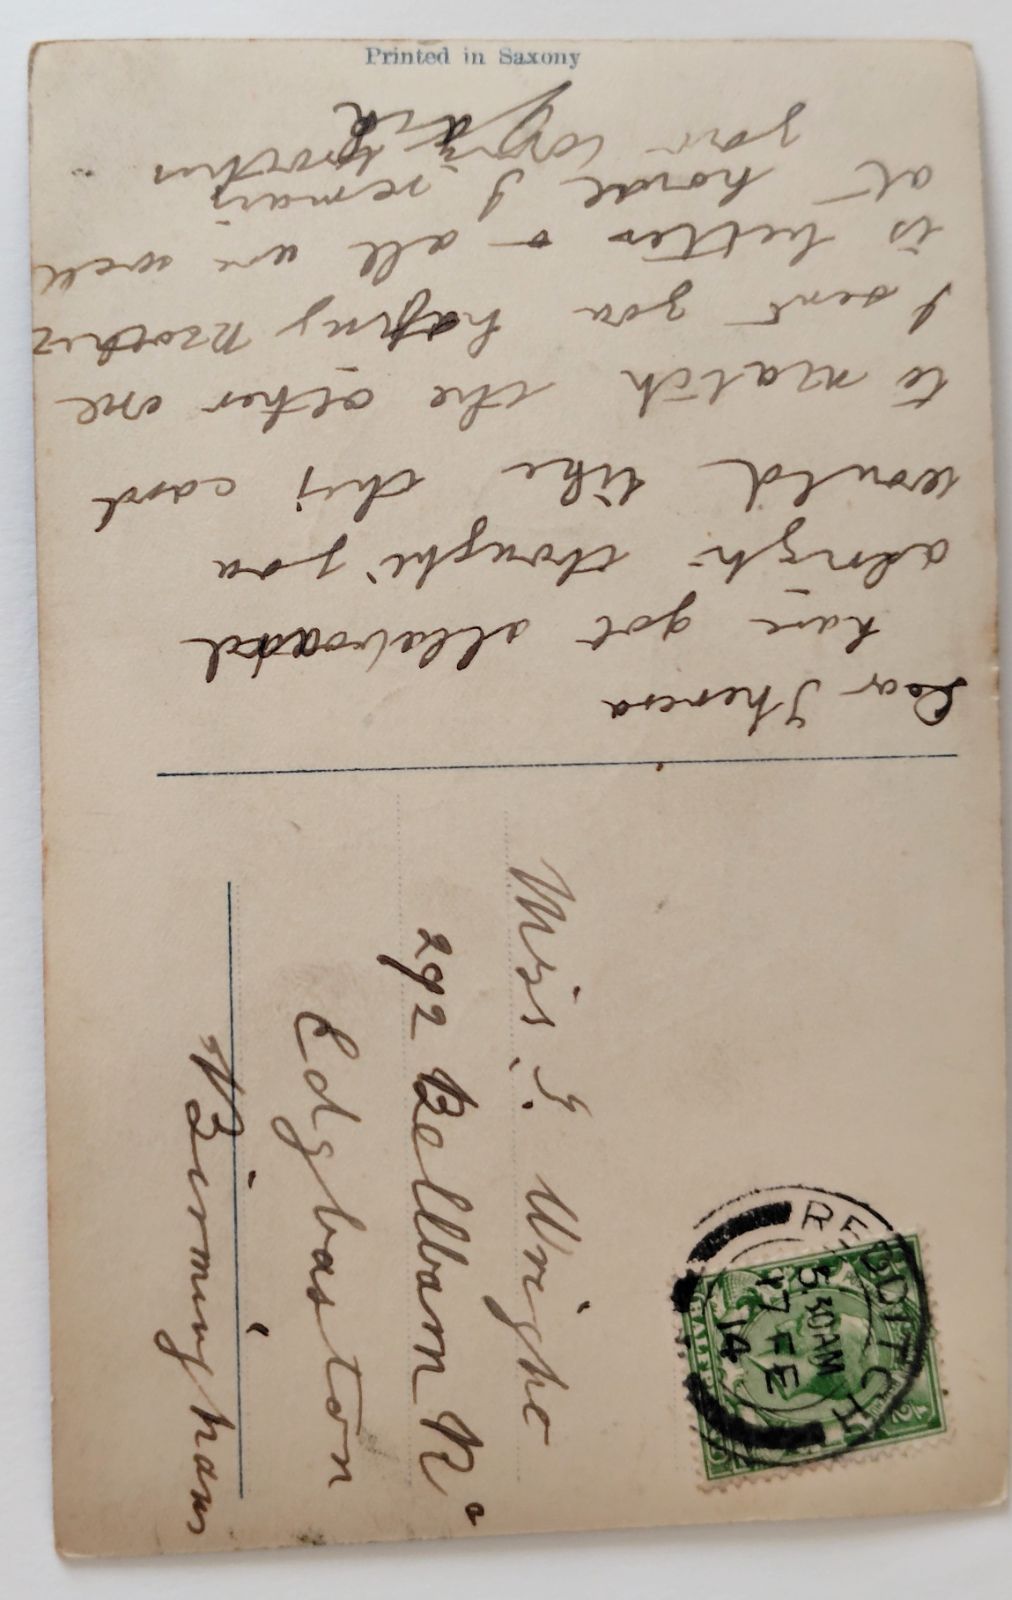 Printed in Saxony
Dear Theresa
have got
alright thought you
would like this card
to match the other one
I sent you hoping Mother
is better & all are well
at home I remain
your loving brother
Miss. T. Wright
292 Bellbarn Rd
Edgbaston
Birmingham
REDDITCH
5.30AM
17 FE
14